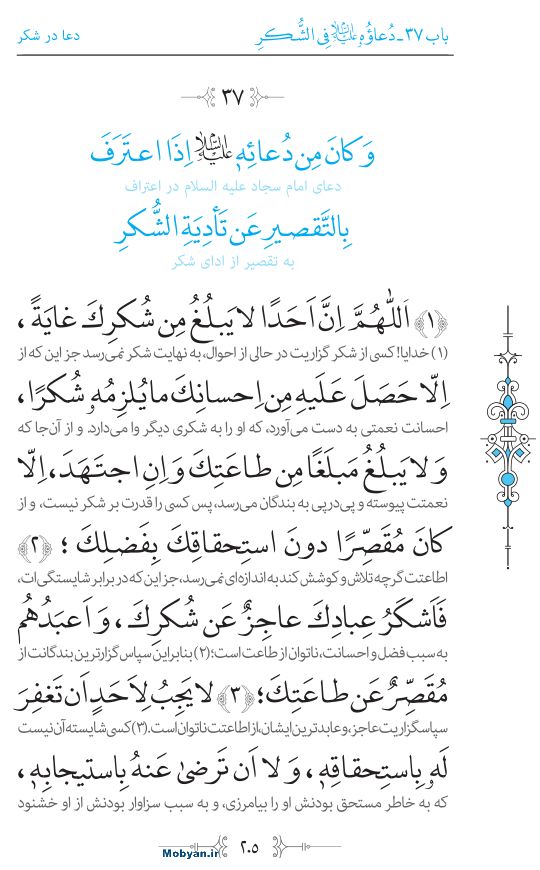 باب ۳۷ـ دُعاؤُهُ عليه‌السلام فِی الشُّکرِ
دعا در شکر
۳۷
وَ کانَ مِن دُعائِهِ عليه‌السلام اِذَا اعتَرَفَ
دعای امام سجاد علیه السلام در اعتراف
بِالتَّقصیرِ عَن تَأدِیَةِ الشُّکرِ
به تقصیر از ادای شکر
﴿۱﴾ اَللّٰهُمَّ اِنَّ اَحَدًا لا یَبلُغُ مِن شُکرِكَ غایَةً ،
(۱) خدایا! کسی از شکر گزاریت در حالی از احوال، به نهایت شکر نمی‌رسد جز این که از
اِلّا حَصَلَ عَلَیهِ مِن اِحسانِكَ ما یُلزِمُهُ شُکرًا ،
احسانت نعمتی به دست می‌آورد، که او را به شکری دیگر وا می‌دارد. و از آن‌جا که
وَ لا یَبلُغُ مَبلَغًا مِن طاعَتِكَ وَ اِنِ اجتَهَدَ ، اِلّا
نعمتت پیوسته و پی‌در‌پی به بندگان می‌رسد، پس کسی را قدرت بر شکر نیست، و از
کانَ مُقَصِّرًا دونَ استِحقاقِكَ بِفَضلِكَ ؛ ﴿۲﴾
اطاعتت گرچه تلاش و کوشش کند به اندازه‌ای نمی‌رسد، جز این که در برابر شایستگی ات،
فَاَشکَرُ عِبادِكَ عاجِزٌ عَن شُکرِكَ ، وَ اَعبَدُهُم
به سبب فضل و احسانت، ناتوان از طاعت است؛ (۲) بنابراین سپاس گزارترین بندگانت از
مُقَصِّرٌ عَن طاعَتِكَ ؛ ﴿۳﴾ لا یَجِبُ لِاَحَدٍ اَن تَغفِرَ
سپاسگزاریت عاجز، و عابدترین ایشان، از اطاعتت ناتوان است. (۳) کسی شایسته آن نیست
لَهُ بِاستِحقاقِهِ ، وَ لا اَن تَرضیٰ عَنهُ بِاستیجابِهِ ،
که به خاطر مستحق بودنش او را بیامرزی، و به سبب سزاوار بودنش از او خشنود
۲۰۵
Mobyan.ir